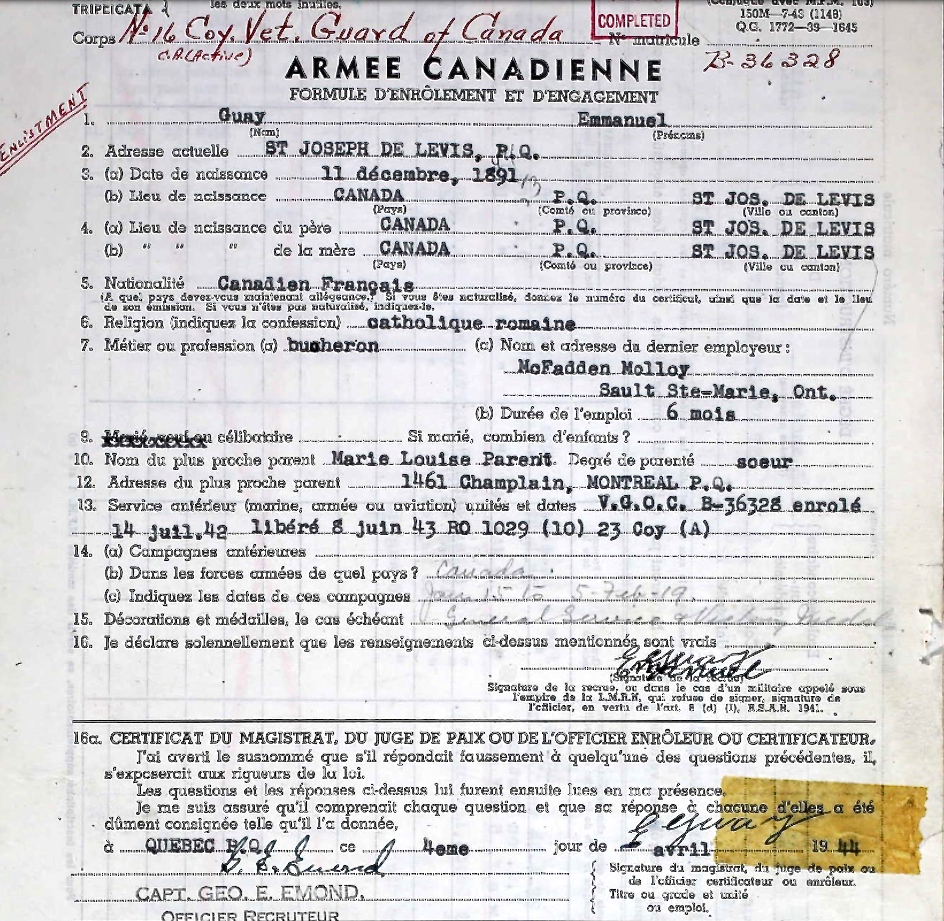 TRIPLICATA
les deux mots inutiles.
COMPLETED
150M—7-43 (1149)
Q.G. 1772—39—1645
Corps No 16 Coy. Vet. Guard of Canada
C.A. (Active)
No matricule B-36328
ENLISTMENT
ARMEE CANADIENNE
FORMULE D'ENRÔLEMENT ET D'ENGAGEMENT
1. Guay Emmanuel
(Nom) (Prénoms)
2. Adresse actuelle ST JOSEPH DE LEVIS, P.Q.
3. (a) Date de naissance 11 décembre, 1891
(b) Lieu de naissance CANADA P.Q. ST JOS. DE LEVIS
(Pays) (Comté ou province) (Ville ou canton)
4. (a) Lieu de naissance du père CANADA P.Q. ST JOS. DE LEVIS
(b) " " " de la mère CANADA P.Q. ST JOS. DE LEVIS
(Pays) (Comté ou province) (Ville ou canton)
5. Nationalité Canadien Français
(A quel pays devez-vous maintenant allégeance? Si vous êtes naturalisé, donnez le numéro du certificat, ainsi que la date et le lieu
de son émission. Si vous n'êtes pas naturalisé, indiquez-le.
6. Religion (indiquez la confession) catholique romaine
7. Métier ou profession (a) bucheron (c) Nom et adresse du dernier employeur:
McFadden Molloy
Sault Ste-Marie, Ont.
(b) Durée de l'emploi 6 mois
9. célibataire Si marié, combien d'enfants?
10. Nom du plus proche parent Marie Louise Parent Degré de parenté soeur
12. Adresse du plus proche parent 1461 Champlain, MONTREAL P.Q.
13. Service antérieur (marine, armée ou aviation) unités et dates V.G.O.C. B-36328 enrolé
14 juil.42 libéré 8 juin 43 RO 1029 (10) 23 Coy (A)
14. (a) Campagnes antérieures
(b) Dans les forces armées de quel pays? Canada.
(c) Indiquez les dates de ces campagnes to 5-Feb-19.
15. Décorations et médailles, le cas échéant General Service & Victory
16. Je déclare solennellement que les renseignements ci-dessus mentionnés sont vrais
E Guay
Signature de la recrue, ou dans le cas d'un militaire appelé sous
l'empire de la L.M.R.N, qui refuse de signer, signature de
l'officier, en vertu de l'art. 8 (d) (1), R.S.A.H. 1941.
16a. CERTIFICAT DU MAGISTRAT, DU JUGE DE PAIX OU DE L'OFFICIER ENRÔLEUR OU CERTIFICATEUR.
J'ai averti le susnommé que s'il répondait faussement à quelqu'une des questions précédentes, il
s'exposerait aux rigueurs de la loi.
Les questions et les réponses ci-dessus lui furent ensuite lues en ma présence.
Je me suis assuré qu'il comprenait chaque question et que sa réponse à chacune d'elles a été
dûment consignée telle qu'il l'a donnée,
E Guay
à QUEBEC P.Q. ce 4eme jour de avril 19 44
G. E. Emond
Signature du magistrat, du juge de paix ou
de l'officier certificateur ou enrôleur.
CAPT. GEO. E. EMOND.
Titre ou grade et unité
ou emploi.
OFFICIER RECRUTEUR